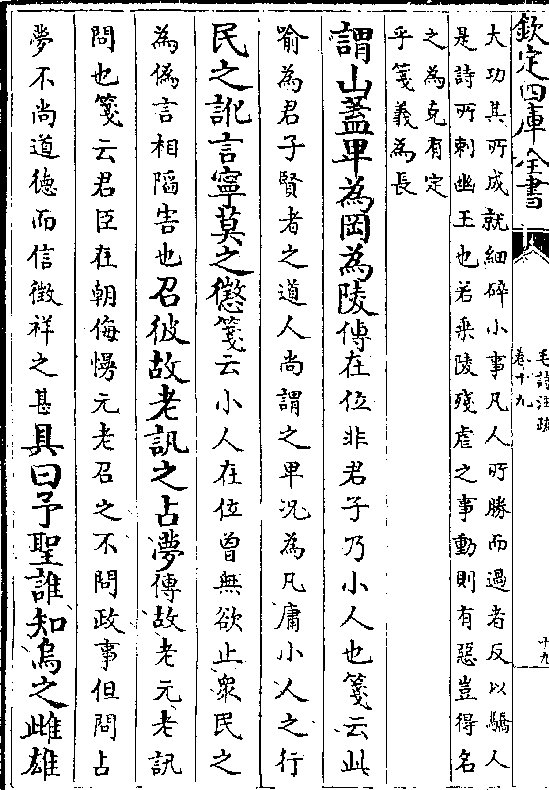 欽定四庫全書
毛詩注疏
卷十九
十九
大功其所成就細碎小事凡人所勝而過者反以驕人
是詩所刺幽王也若乘陵殘虐之事動則有惡豈得名
之為克有定
乎箋義為長
謂山蓋卑為岡為陵傳在位非君子乃小人也箋云此
喻為君子賢者之道人尚謂之卑況為凡庸小人之行
民之訛言寧莫之懲箋云小人在位曾無欲止衆民之
為偽言相䧟害也召彼故老訊之占夢傳故老元老訊
問也箋云君臣在朝侮慢元老召之不問政事但問占
夢不尚道德而信徵祥之甚具曰予聖誰知烏之雌雄